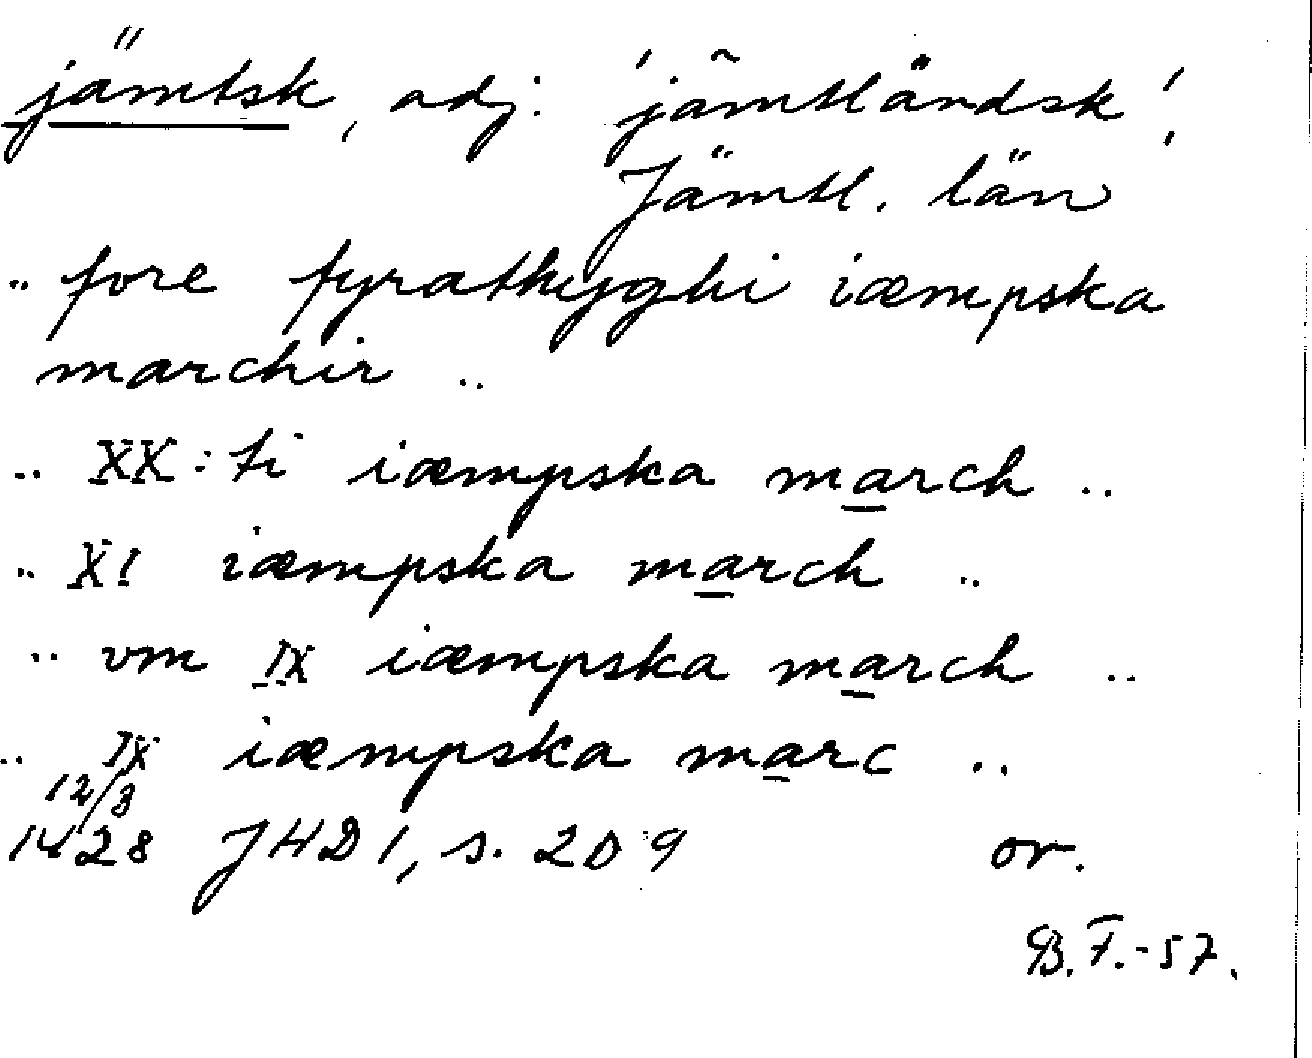 jämtsk, adj. 'jämtländsk',
Jämtl. län
.. fore fyrathyghi iæmpska
marchir ..
.. XX:ti iæmpska march ..
.. XI iæmpska march ..
.. vm IX iæmpska march ..
.. IX iæmpska marc ..
12/3
1428 JHD 1, s. 209 or.
B.F.-57.